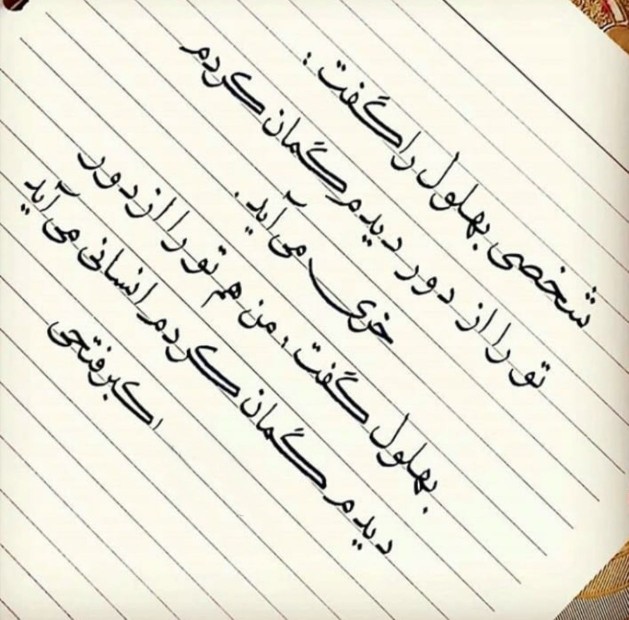 شخصی بهلول را گفت :
تو را از دور دیدم گمان کردم
خری می آید .
بهلول گفت : من هم تو را از دور
دیدم گمان کردم انسانی می آید
اکبر فتحی